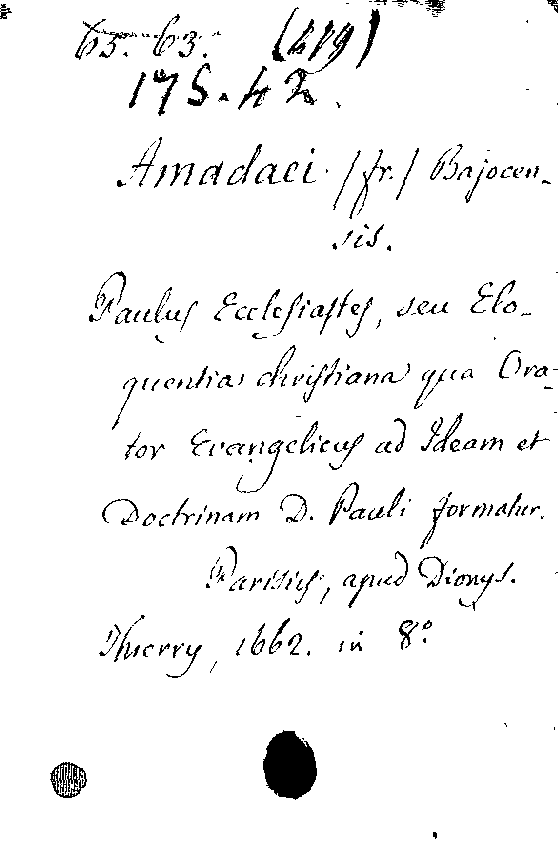 63. 63. (419)
175. 42.
Amadaei /fr./ Bajocen-
sis.
Paulus Ecclesiastes, seu Elo-
quentia christiana qua Ora-
tor Evangelicus ad Ideam et
Doctrinam D. Pauli formatur.
Parisiis, apud Dionys.
Thierry, 1662. in 8º